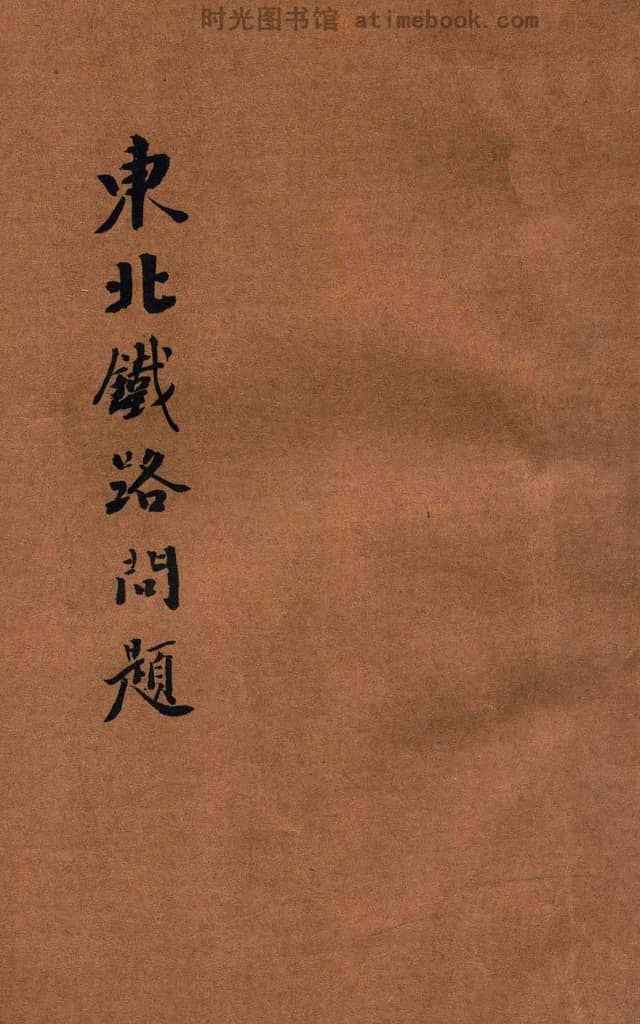 时光图书馆 atimebook.com
東北鐵路問題